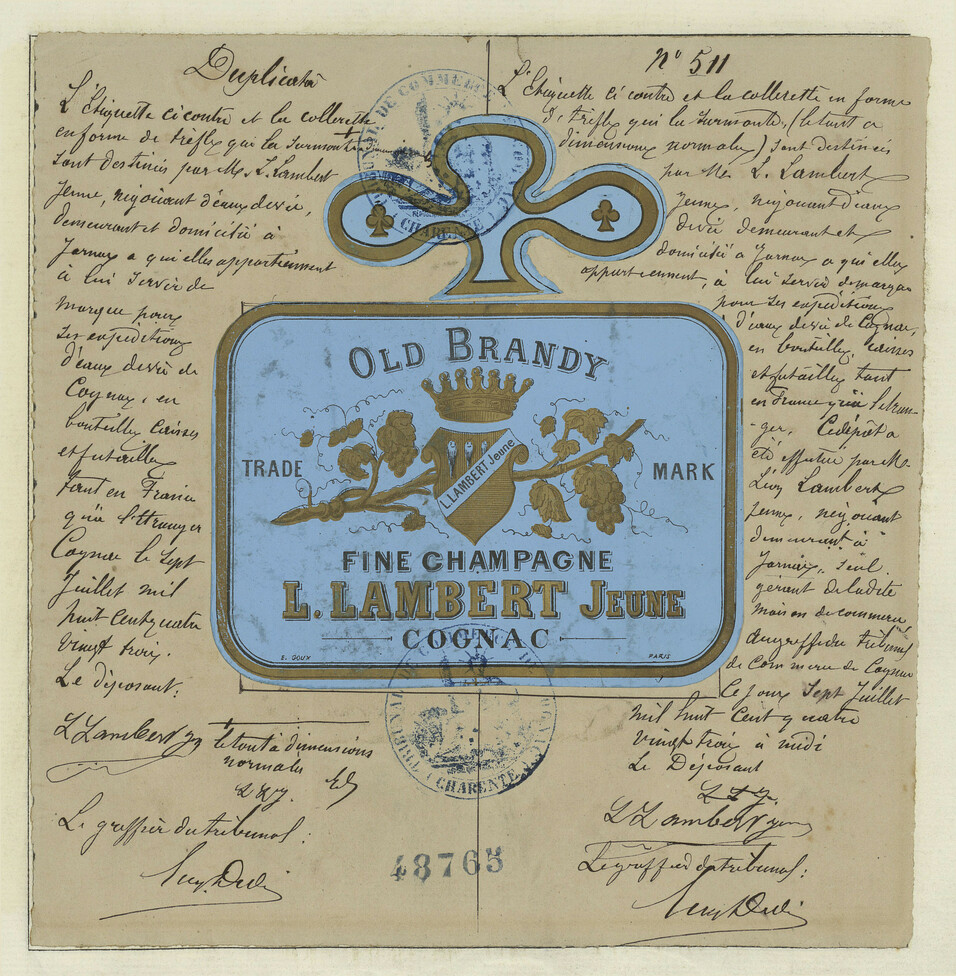 Duplicata
L'Etiquette ci contre et la collerette
en forme de trèfle qui la surmonte +
sont destinés par Mr. L. Lambert
Jeune, négociant d'eaux de vie,
demeurant et domicilié à
Jarnac a qui elles appartiennent
à lui servir de
marque pour
ses expéditions
d'eaux de vie de
Cognac, en
bouteilles caisses
et futailles
tant en France
qu'à l'Etranger
Cognac le sept
Juillet mil
huit cent quatre
vingt trois.
Le déposant:
L Lambert jne
+ le tout à dimensions
normales
Le greffier du tribunal:
No 511
L'Etiquette ci contre et la collerette en forme
de trèfle qui la surmonte, (le tout a
dimensions normales) sont destinés
par Mr L. Lambert
Jeune, négociant d'eaux
de vie demeurant et
domicilié à Jarnac a qui elles
appartiennent, à lui servir de marque
pour ses expéditions
d'eaux de vie de Cognac,
en bouteilles, caisses
et futailles tant
en France qu'à l'étran-
-ger. Ce dépôt a
été effectué par Mr
Léon Lambert
jeune, négociant
demeurant à
Jarnac, seul
gérant de ladite
maison de commerce,
au greffe du tribunal
de Commerce de Cognac
ce jour sept Juillet
mil huit cent quatre
vingt trois à midi
Le Déposant
L Lambert jeune
Le greffier du tribunal:
TRIBUNAL DE COMMERCE DE COGNAC
(CHARENTE)
OLD BRANDY
TRADE MARK
L. LAMBERT Jeune
FINE CHAMPAGNE
L. LAMBERT JEUNE
COGNAC
E. GOUX PARIS
TRIBUNAL DE COMMERCE DE COGNAC
(CHARENTE)
48765